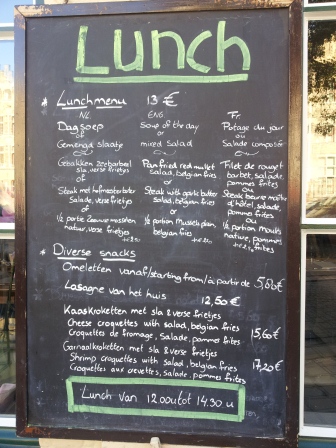 Lunch
* Lunchmenu 13 €
NL ENG Fr
Dagsoep Soup of the day Potage du jour
of or ou
Gemengd slaatje mixed Salad Salade composée
Gebakken zeebarbeel Pan fried red mullet Filet de rouget
sla, verse frietjes salad, belgian fries barbet, salade,
of or pommes frites
ou
Steak met hofmeesterboter Steak with garlic butter Steak beurre maître
Salade, verse frietjes salad, belgian fries d'hôtel, salade
of or pommes frites
ou
½ portie Zeeuwse mosselen ½ portion Mussels plain ½ portion Mouls
natuur, verse frietjes belgian fries nature, pommes
frites
* Diverse snacks
Omeletten vanaf/starting from/à partir de 5,60€
Lasagne van het huis 12,50€
Kaaskroketten met sla & verse frietjes
Cheese croquettes with salad, belgian fries 15,60€
Croquettes de fromage, Salade, pommes frites
Garnaalkroketten met sla & verse frietjes
Shrimp croquettes with salad, belgian fries 17,20€
Croquettes aux crevettes, salade, pommes frites
Lunch van 12.00u tot 14.30 u